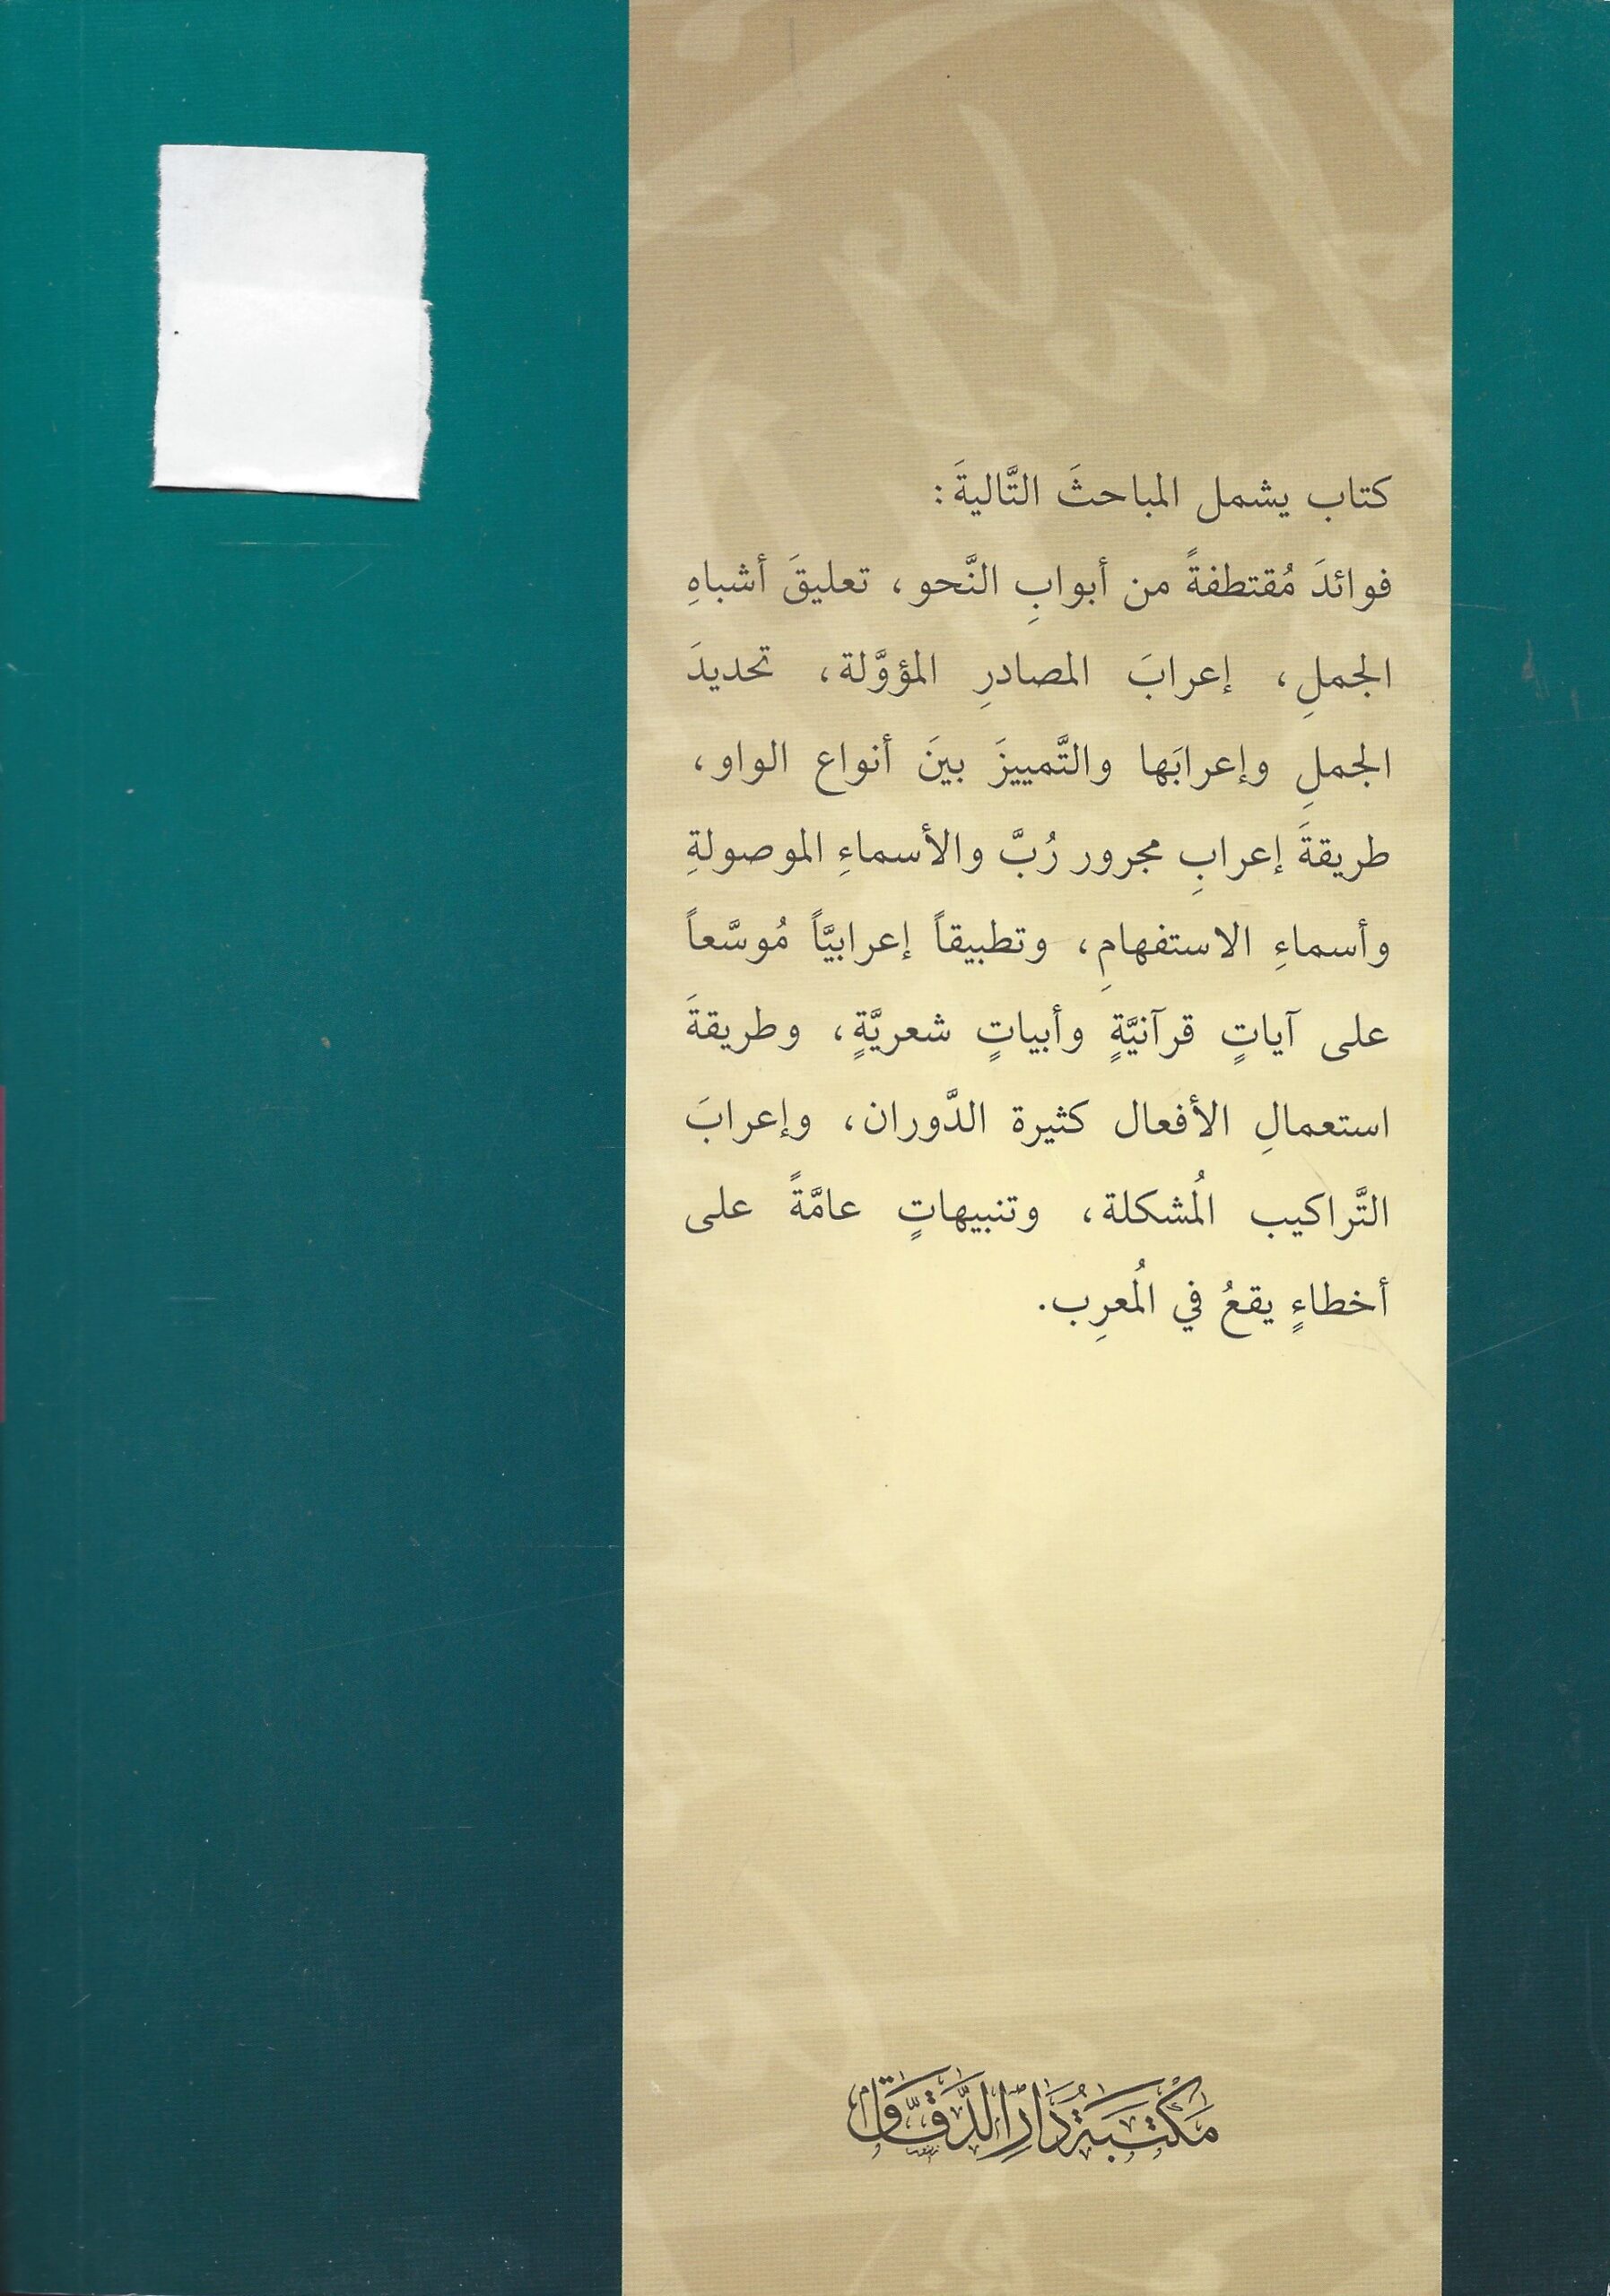 كتاب يشمل المباحثَ التَّاليةَ:
فوائدَ مُقتطفةً من أبوابِ النَّحو، تعليقَ أشباهِ
الجملِ، إعرابَ المصادرِ المؤوَّلة، تحديدَ
الجملِ وإعرابَها والتَّمييزَ بينَ أنواع الواو،
طريقةَ إعرابِ مجرور رُبَّ والأسماءِ الموصولةِ
وأسماءِ الاستفهامِ، وتطبيقاً إعرابيَّاً مُوسَّعاً
على آياتٍ قرآنيَّةٍ وأبياتٍ شعريَّةٍ، وطريقةَ
استعمالِ الأفعال كثيرة الدَّوران، وإعرابَ
التَّراكيب المُشكلة، وتنبيهاتٍ عامَّةً على
أخطاءٍ يقعُ في المُعرِب.
مَكْتَبَةُ دَارِ الدَّقَّاق